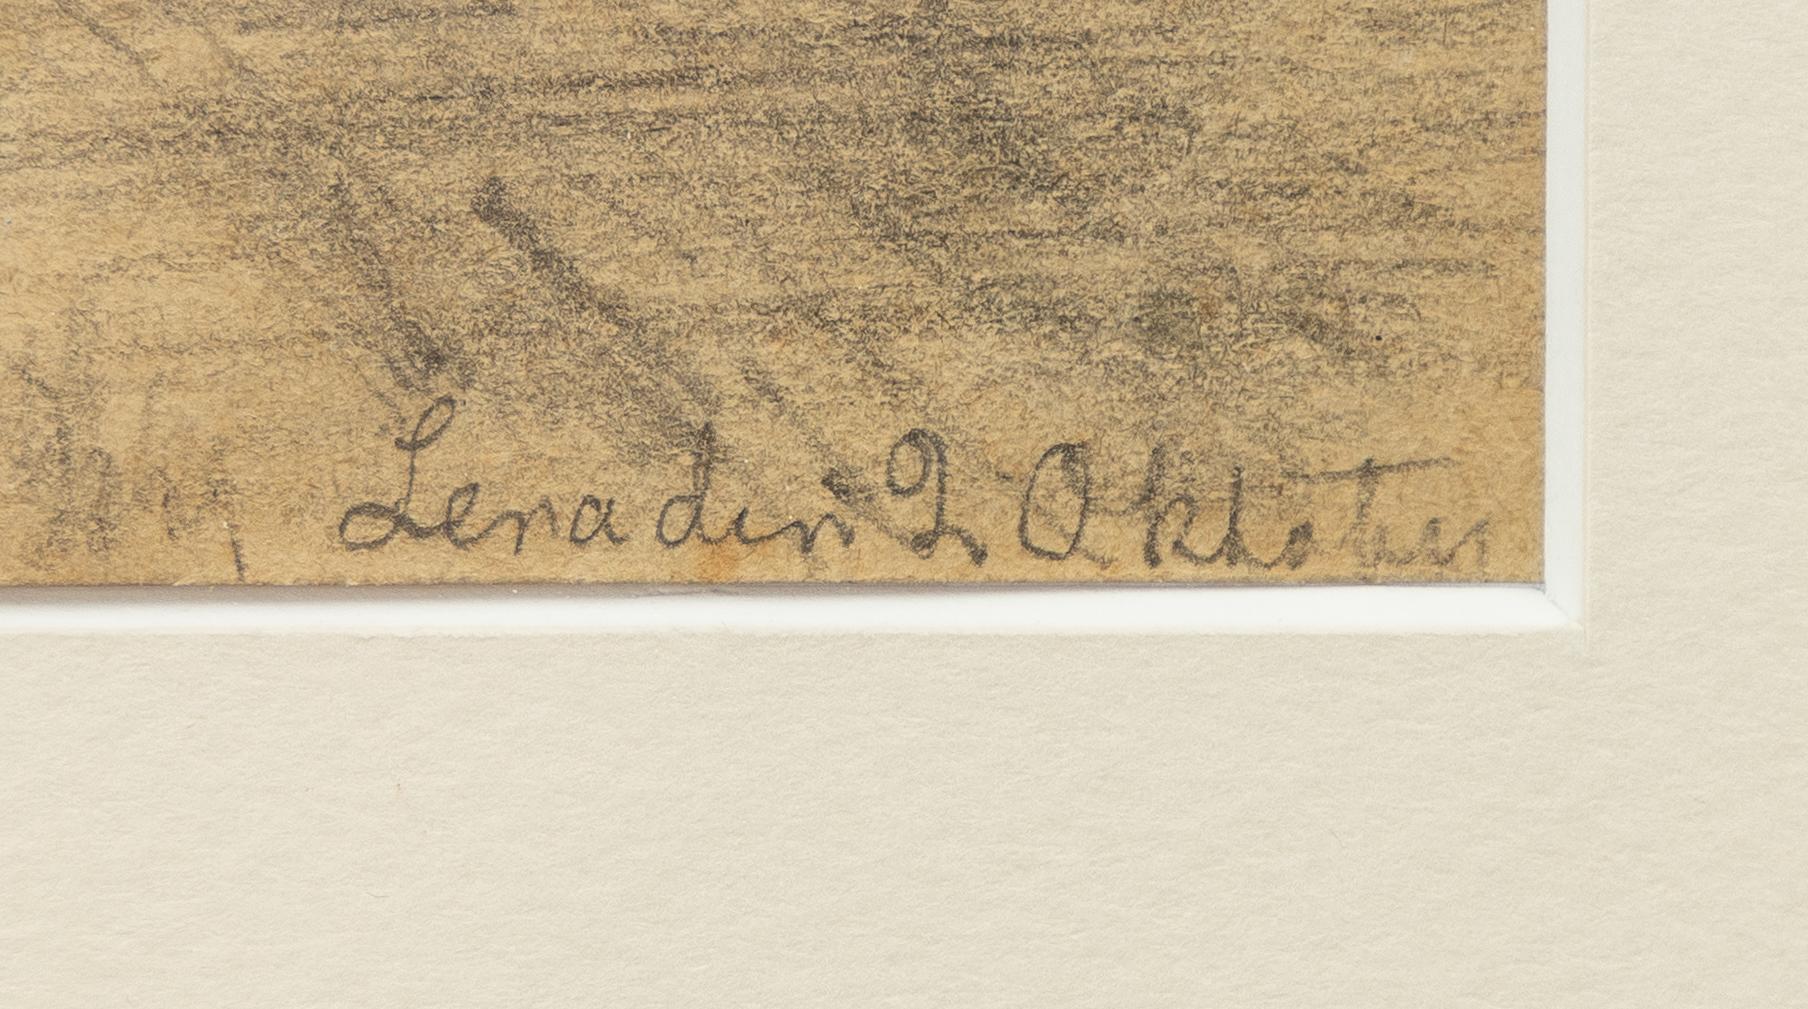 Lena den 2 Oktober